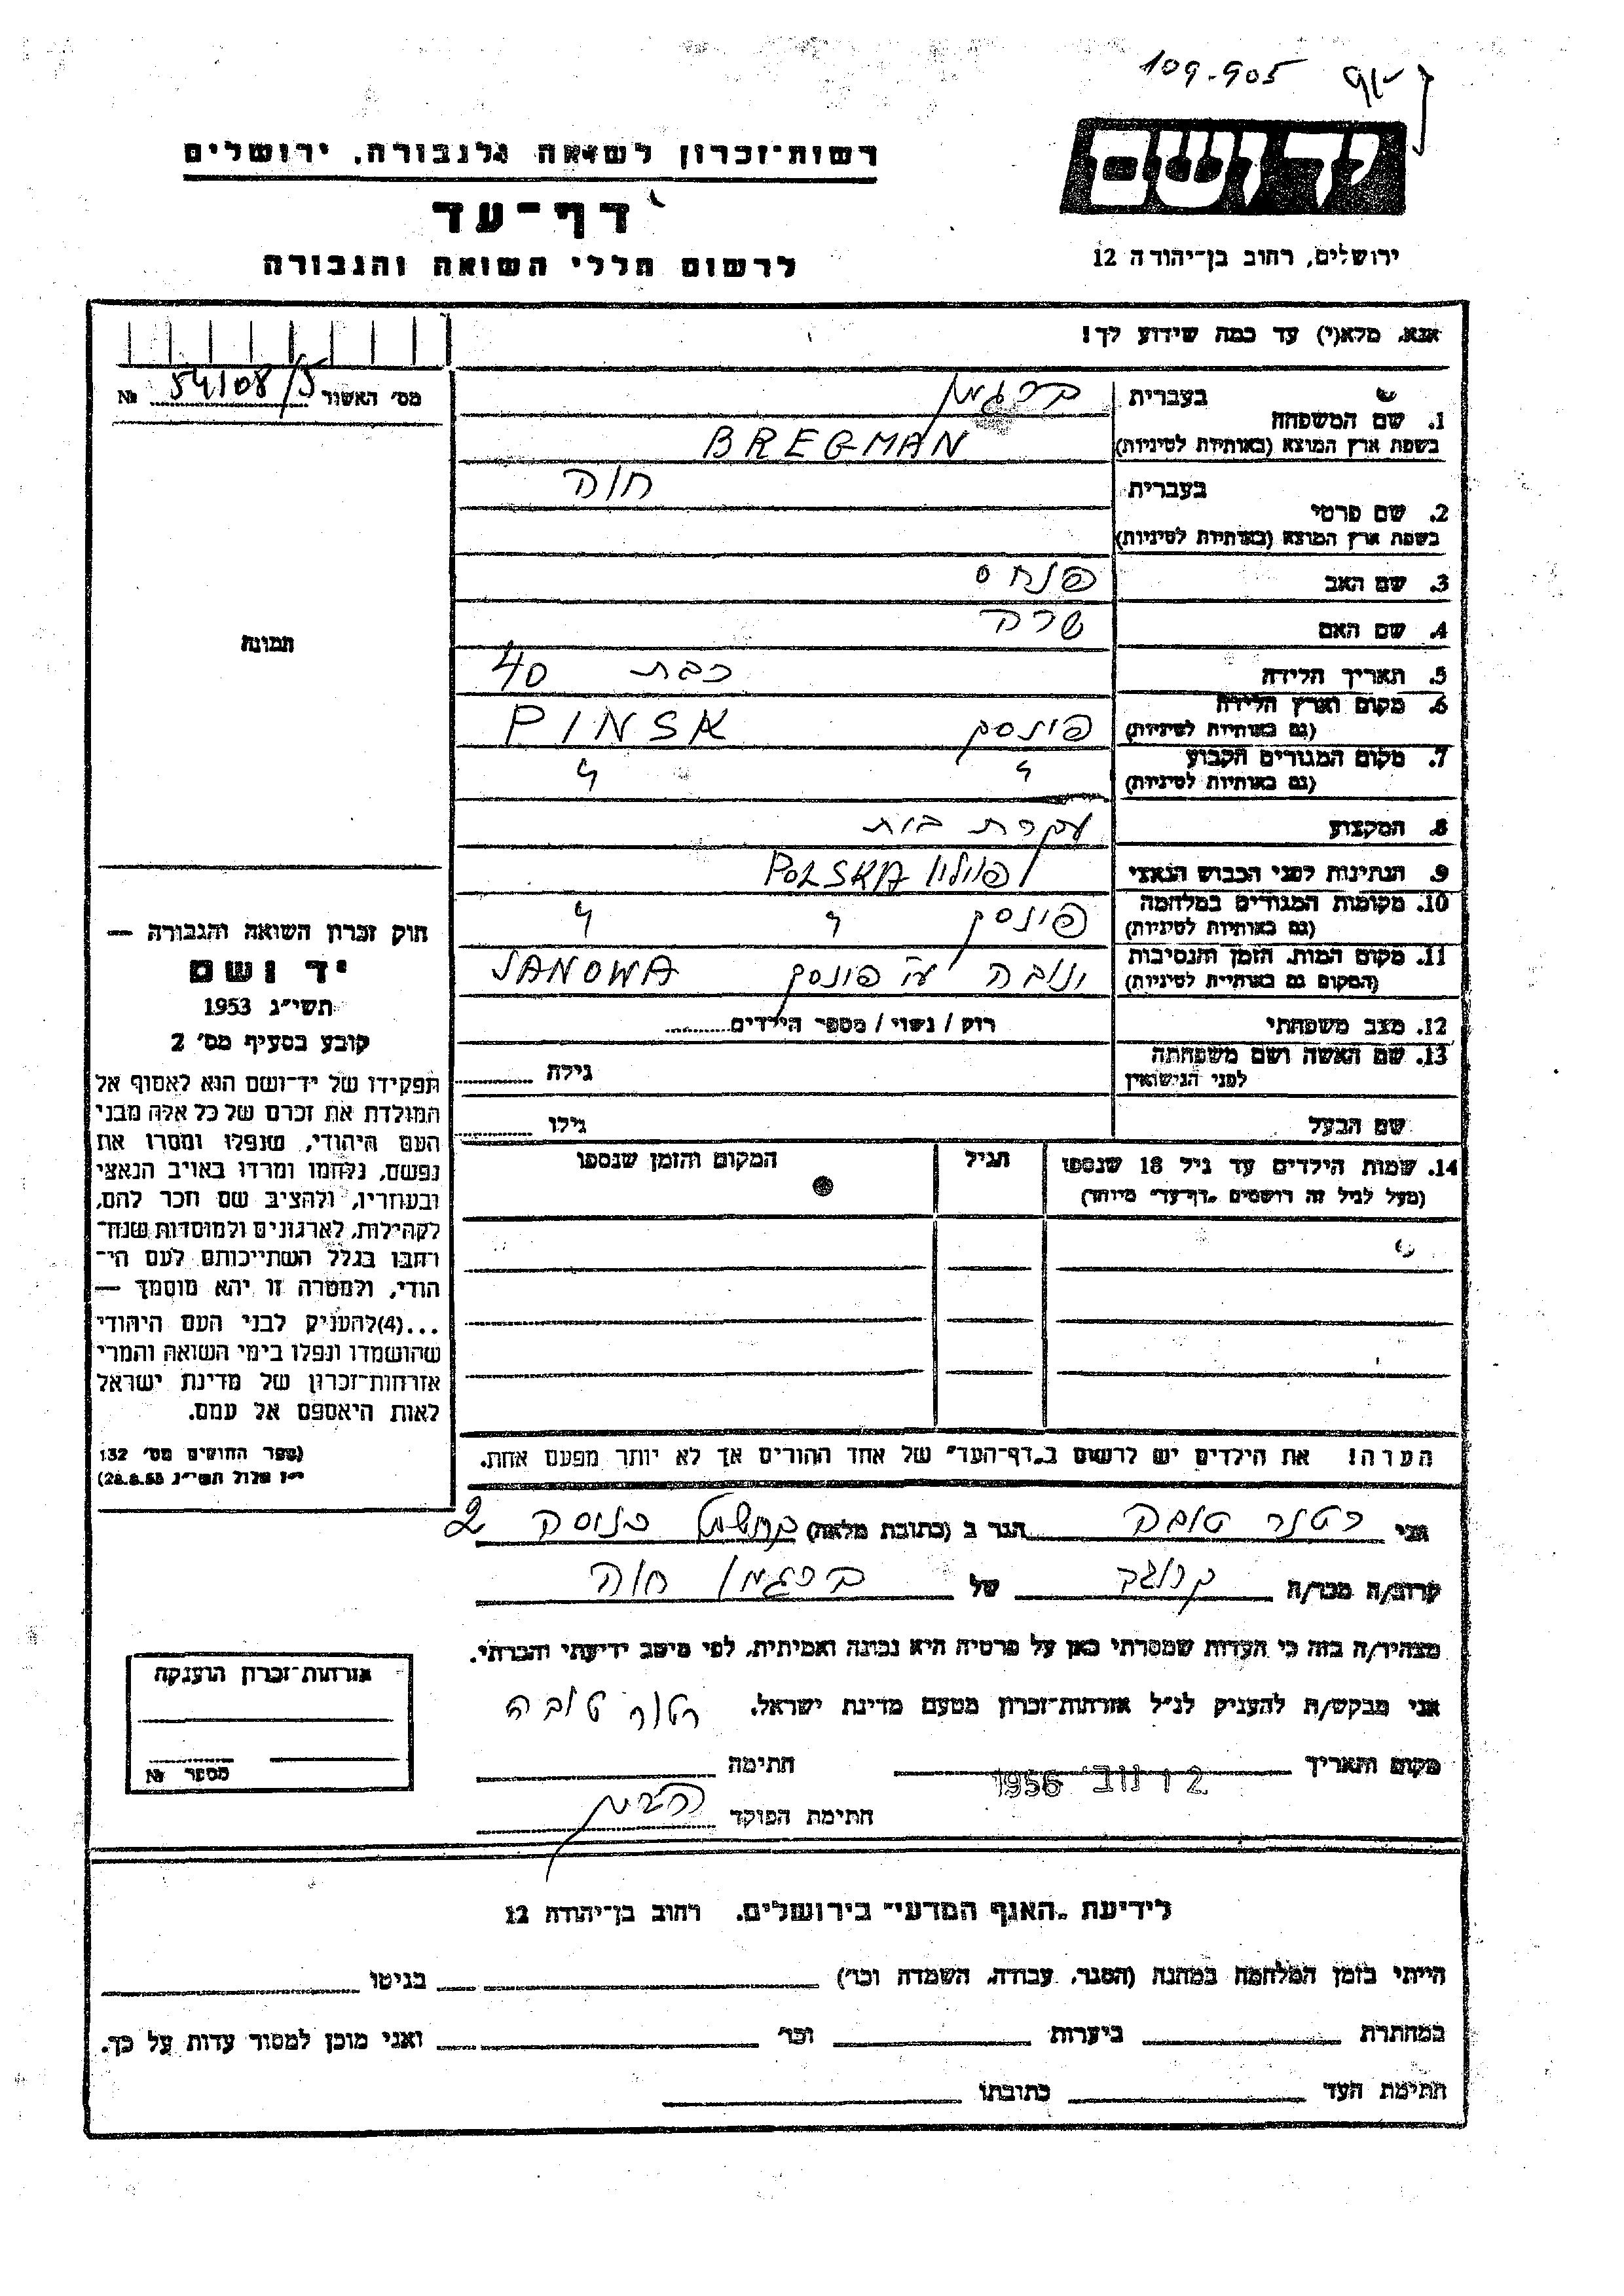 109.905
יד ושם
רשות-זכרון לשואה ולגבורה, ירושלים
דף-עד
לרשום חללי השואה והגבורה
ירושלים, רחוב בן-יהודה 12
אנא, מלא(י) עד כמה שידוע לך!
מס׳ האשור 54108/5 №
תמונה
1. שם המשפחה
בעברית ברגמן
בשפת ארץ המוצא (באותיות לטיניות) BREGMAN
2. שם פרטי
בעברית חוה
בשפת ארץ המוצא (באותיות לטיניות)
3. שם האב פנחס
4. שם האם שרה
5. תאריך הלידה כבת 40
6. מקום וארץ הלידה (גם באותיות לטיניות) פינסק PINSK
7. מקום המגורים הקבוע (גם באותיות לטיניות) " "
8. המקצוע עקרת בית
9. הנתינות לפני הכבוש הנאצי פולין POLSKA
10. מקומות המגורים במלחמה (גם באותיות לטיניות) פינסק " "
11. מקום המות, הזמן והנסיבות (המקום גם באותיות לטיניות) ינובה ע״י פינסק JANOWA
12. מצב משפחתי רוק / נשוי / מספר הילדים
13. שם האשה ושם משפחתה לפני הנישואין גילה
שם הבעל גילו
14. שמות הילדים עד גיל 18 שנספו (מעל לגיל זה רושמים „דף-עד״ מיוחד) הגיל המקום והזמן שנספו
הערה! את הילדים יש לרשום ב„דף-העד״ של אחד ההורים אך לא יותר מפעם אחת.
חוק זכרון השואה והגבורה —
יד ושם
תשי״ג 1953
קובע בסעיף מס׳ 2
תפקידו של יד-ושם הוא לאסוף אל
המולדת את זכרם של כל אלה מבני
העם היהודי, שנפלו ומסרו את
נפשם, נלחמו ומרדו באויב הנאצי
ובעוזריו, ולהציב שם וזכר להם,
לקהילות, לארגונים ולמוסדות שנח-
רבו בגלל השתייכותם לעם הי-
הודי, ולמטרה זו יהא מוסמך —
...(4)להעניק לבני העם היהודי
שהושמדו ונפלו בימי השואה והמרי
אזרחות-זכרון של מדינת ישראל
לאות היאספם אל עמם.
(ספר החוקים מס׳ 132
י״ז אלול תשי״ג 28.8.53)
אני רטנר טובה הגר ב (כתובת מלאה) 2
קרוב/ה מכר/ה קרובה של ברגמן חוה
מצהיר/ה בזה כי העדות שמסרתי כאן על פרטיה היא נכונה ואמיתית, לפי מיטב ידיעתי והכרתי.
אני מבקש/ת להעניק לנ״ל אזרחות-זכרון מטעם מדינת ישראל. רטנר טובה
מקום ותאריך 12 נוב׳ 1956 חתימה
חתימת הפוקד
אזרחות-זכרון הוענקה
מספר №
לידיעת „האגף המדעי״ בירושלים, רחוב בן-יהודה 12
הייתי בזמן המלחמה במחנה (הסגר, עבודה, השמדה וכו׳) בגיטו
במחתרת ביערות וכו׳ ואני מוכן למסור עדות על כך.
חתימת העד כתובתו